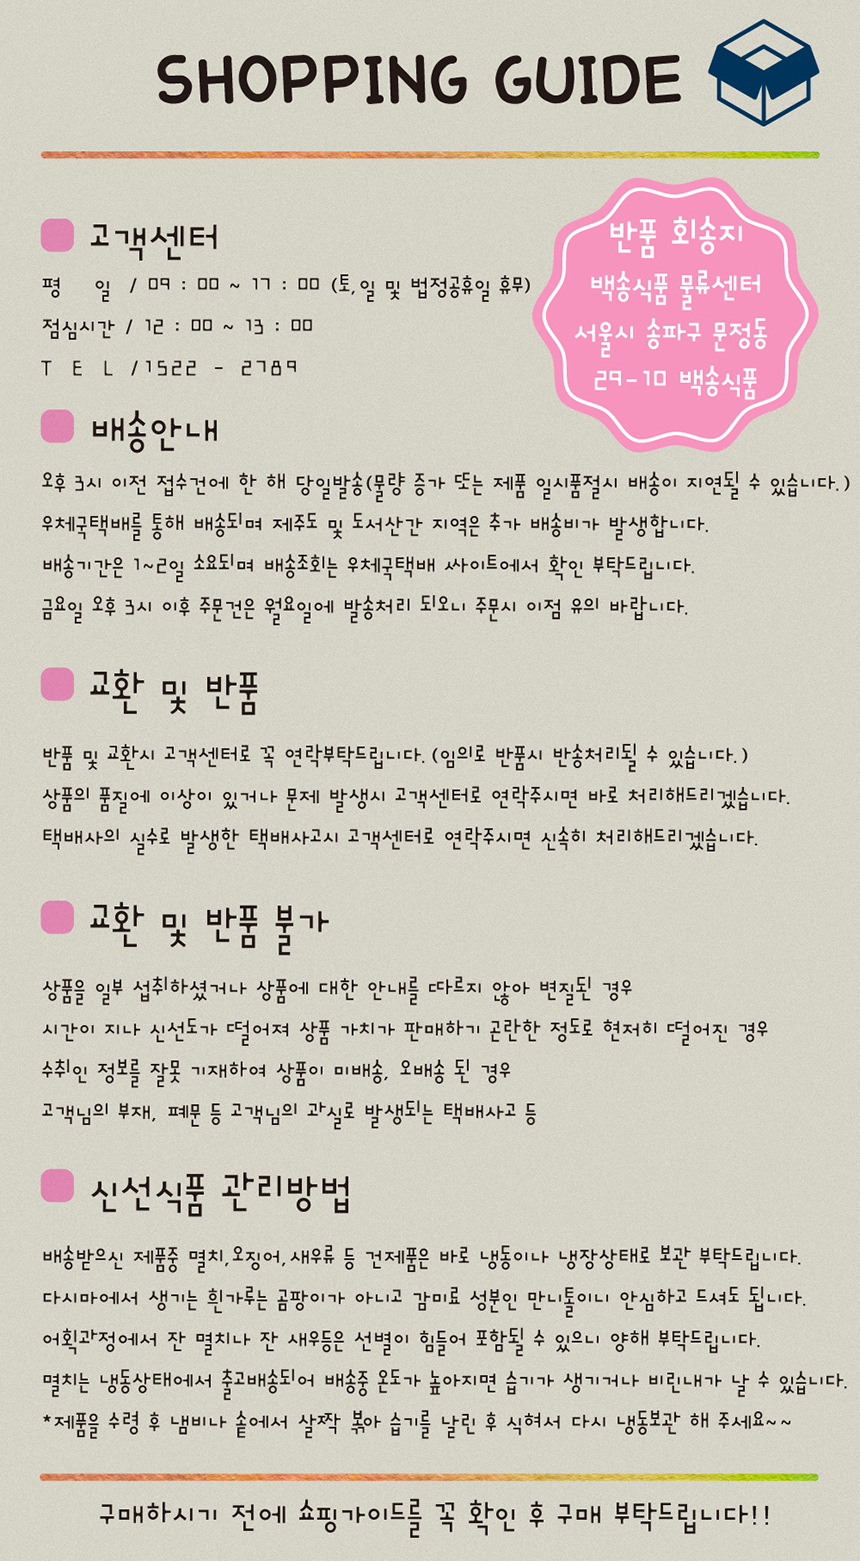 SHOPPING GUIDE
고객센터
평 일 / 09 : 00 ~ 17 : 00 (토,일 및 법정공휴일 휴무)
점심시간 / 12 : 00 ~ 13 : 00
T E L /1522 - 2789
반품 회송지
백송식품 물류센터
서울시 송파구 문정동
29-10 백송식품
배송안내
오후 3시 이전 접수건에 한 해 당일발송(물량 증가 또는 제품 일시품절시 배송이 지연될 수 있습니다.)
우체국택배를 통해 배송되며 제주도 및 도서산간 지역은 추가 배송비가 발생합니다.
배송기간은 1~2일 소요되며 배송조회는 우체국택배 싸이트에서 확인 부탁드립니다.
금요일 오후 3시 이후 주문건은 월요일에 발송처리 되오니 주문시 이점 유의 바랍니다.
교환 및 반품
반품 및 교환시 고객센터로 꼭 연락부탁드립니다. (임의로 반품시 반송처리될 수 있습니다.)
상품의 품질에 이상이 있거나 문제 발생시 고객센터로 연락주시면 바로 처리해드리겠습니다.
택배사의 실수로 발생한 택배사고시 고객센터로 연락주시면 신속히 처리해드리겠습니다.
교환 및 반품 불가
상품을 일부 섭취하셨거나 상품에 대한 안내를 따르지 않아 변질된 경우
시간이 지나 신선도가 떨어져 상품 가치가 판매하기 곤란한 정도로 현저히 떨어진 경우
수취인 정보를 잘못 기재하여 상품이 미배송, 오배송 된 경우
고객님의 부재, 폐문 등 고객님의 과실로 발생되는 택배사고 등
신선식품 관리방법
배송받으신 제품중 멸치,오징어,새우류 등 건제품은 바로 냉동이나 냉장상태로 보관 부탁드립니다.
다시마에서 생기는 흰가루는 곰팡이가 아니고 감미료 성분인 만니톨이니 안심하고 드셔도 됩니다.
어획과정에서 잔 멸치나 잔 새우등은 선별이 힘들어 포함될 수 있으니 양해 부탁드립니다.
멸치는 냉동상태에서 출고배송되어 배송중 온도가 높아지면 습기가 생기거나 비린내가 날 수 있습니다.
*제품을 수령 후 냄비나 솥에서 살짝 볶아 습기를 날린 후 식혀서 다시 냉동보관 해 주세요~~
구매하시기 전에 쇼핑가이드를 꼭 확인 후 구매 부탁드립니다!!